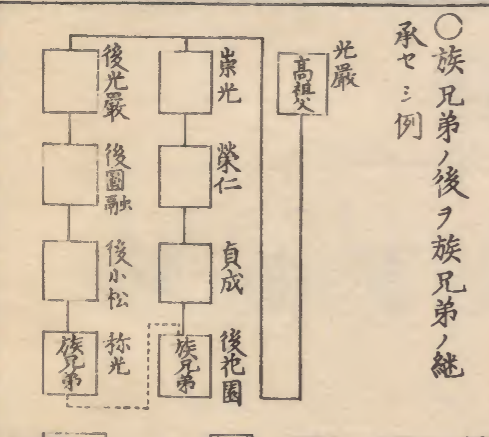 ○族兄弟ノ後ヲ族兄弟ノ継
承セシ例
光嚴
高祖父
崇光
榮仁
貞成
後花園
族兄弟
後光嚴
後圓融
後小松
称光
族兄弟